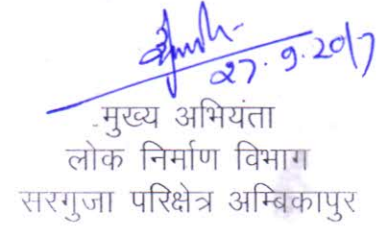 27.9.2017
मुख्य अभियंता
लोक निर्माण विभाग
सरगुजा परिक्षेत्र अम्बिकापुर